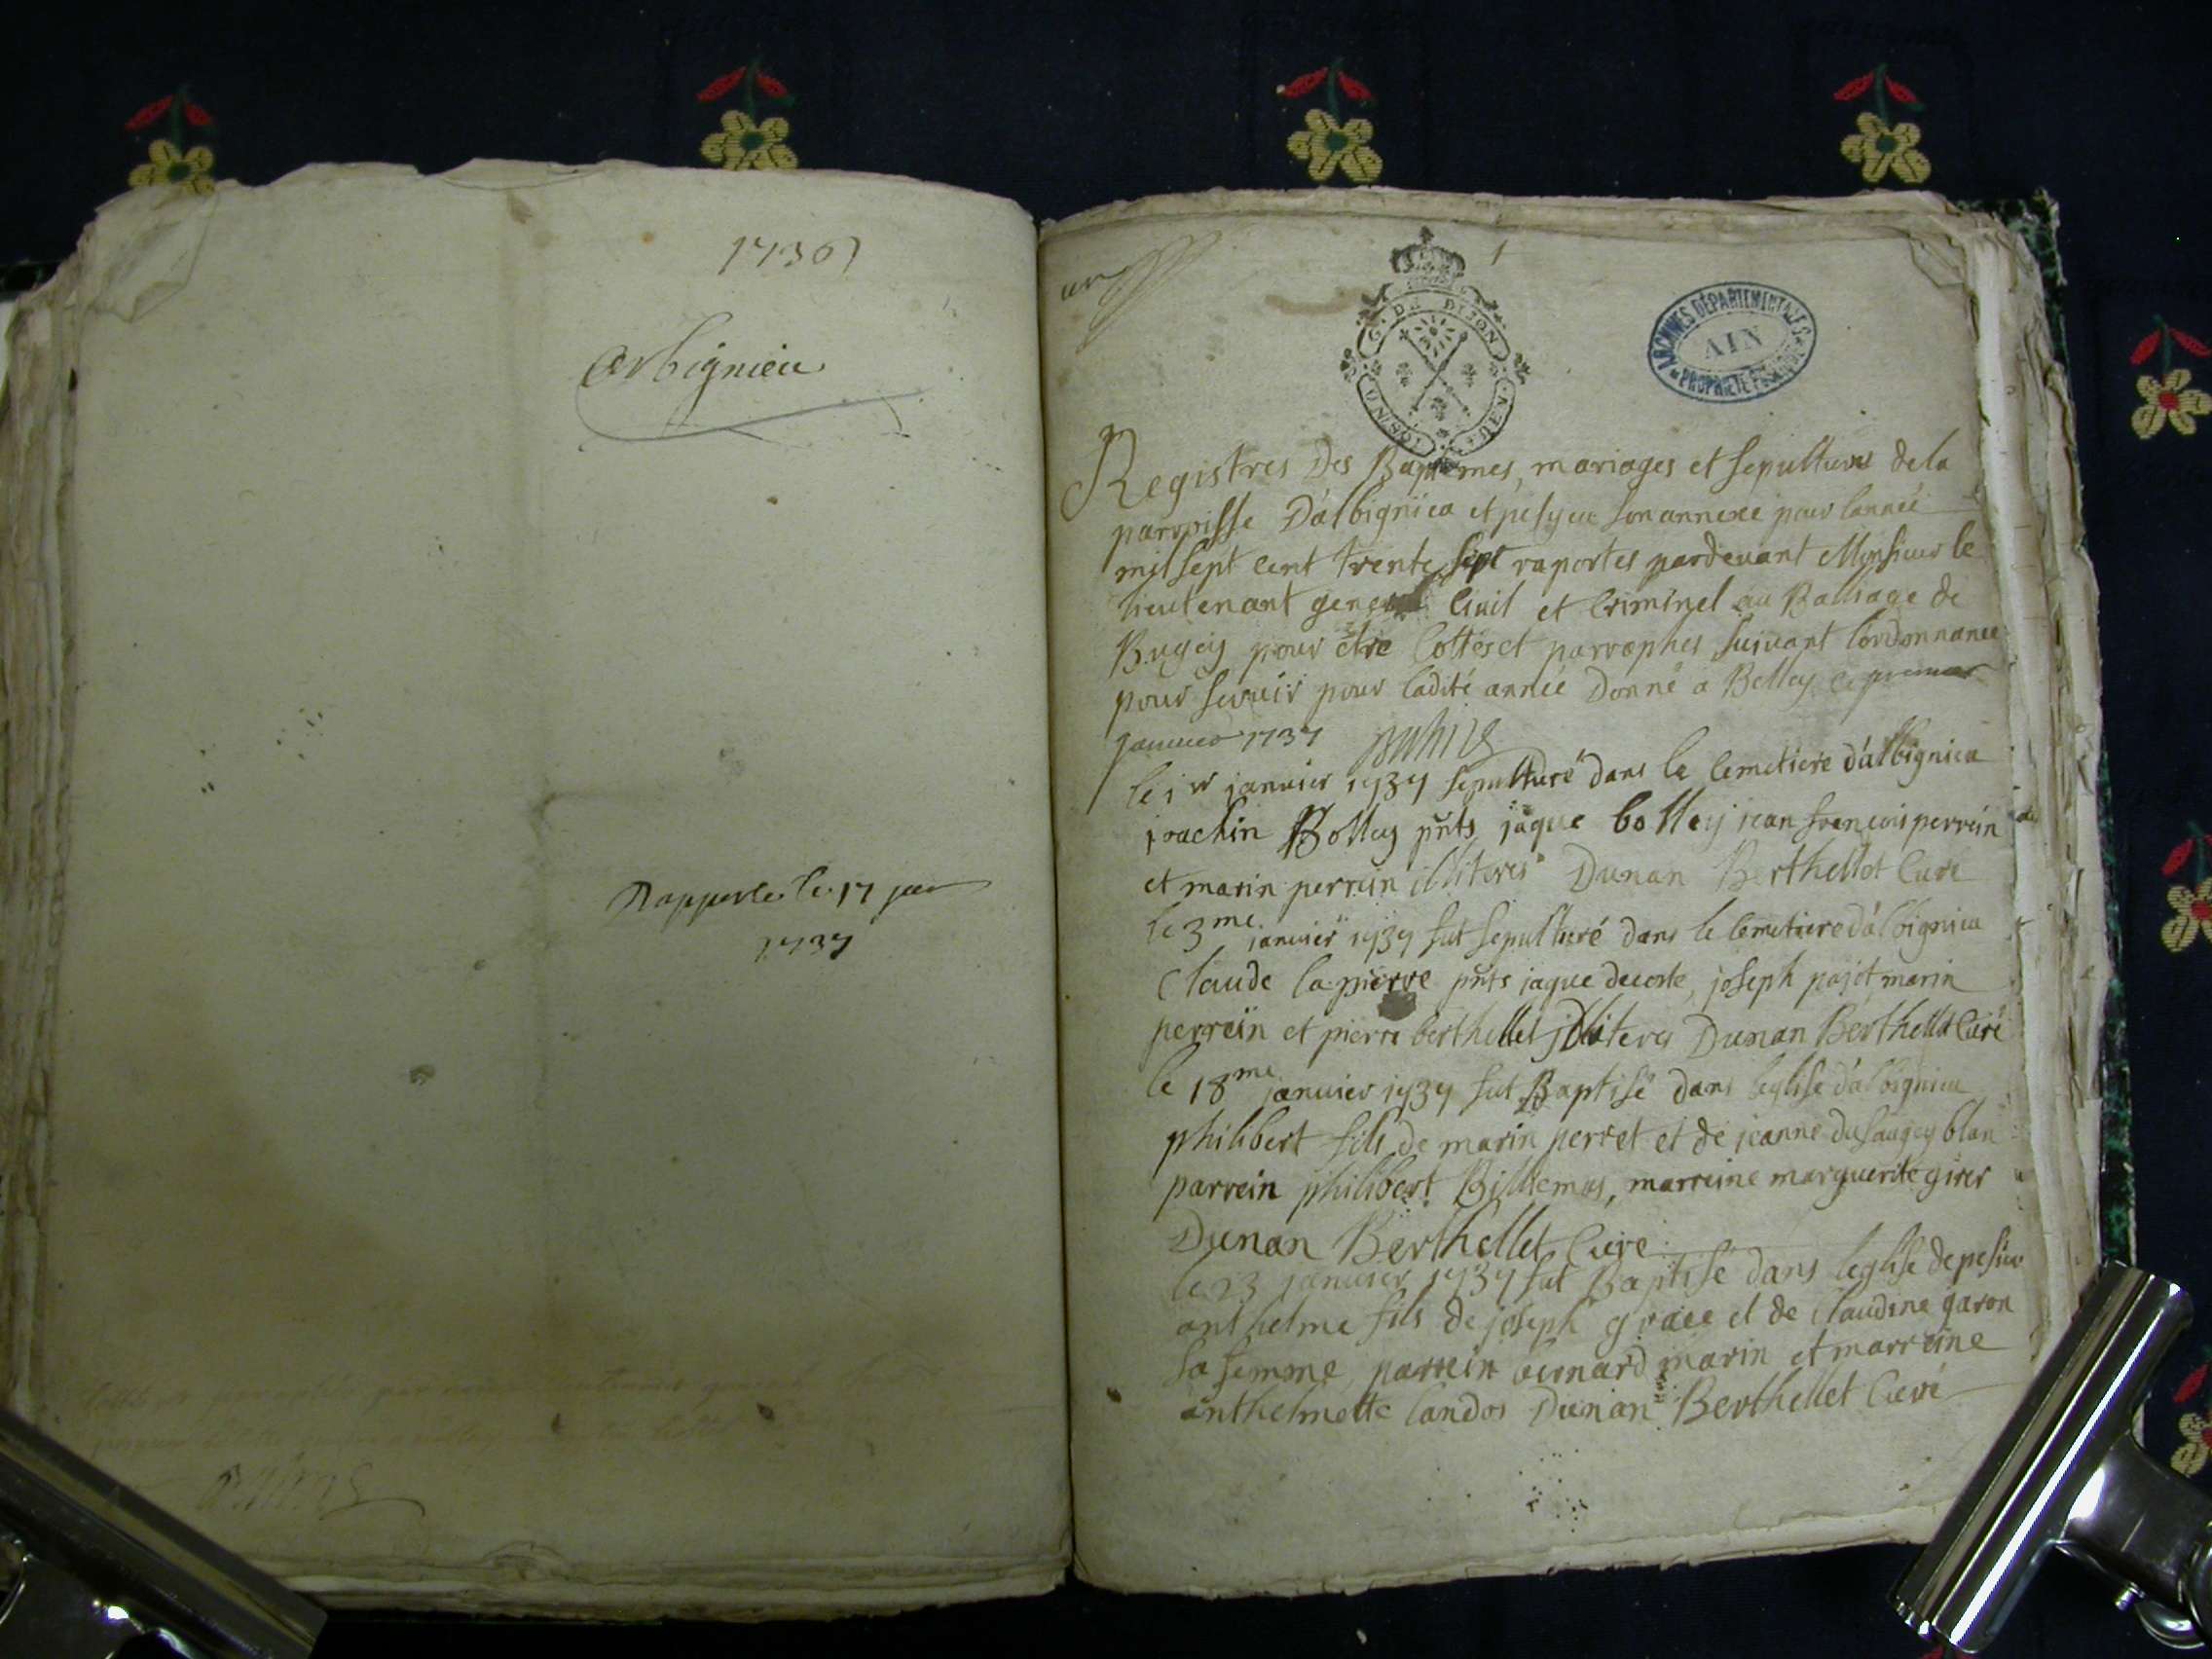 1736
Arbignieu
Rapporté le 17 jan
1737
un
1
G. DE DIJON
ARCHIVES DÉPARTEMENTALES
AIN
PROPRIÉTÉ PUBLIQUE
Registres Des Baptemes, mariages et sepultures de la
parroisse D'albignieu et pesyeu son annexe pour lannée
mil sept cent trente sept raportes pardeuant Monsieur le
lieutenant general Ciuil et Criminel au Balliage de
Bugey pour être Cottés et parraphes suiuant lordonnance
pour seruir pour ladité année Donné a Belley ce premier
januier 1737
le 1er januier 1737 sepulturé dans le Cemetiere d'albignieu
joachin Bolley pnts jaque bolley jean francois perrin
et marin perrein illiteres Dunan Berthellet Curé
le 3me januier 1737 fut sepulturé dans le Cemetiere d'albignieu
Claude lapierre pnts jaque decoste, joseph pajot marin
perrein et pierre berthellet jlliteres Dunan Berthellet Curé
le 18me januier 1737 fut Baptisé dans leglise d'albignieu
philibert fils de marin perret et de jeanne dusaugey blan
parrein philibert Billiemas, marreine marguerite girer
Dunan Berthellet Curé
le 23 januier 1737 fut Baptisé dans leglise de pesieu
anthelme fils de joseph grace et de Claudine garon
sa femme, parrein bernard marin et marreine
anthelmette landos Dunan Berthellet Curé